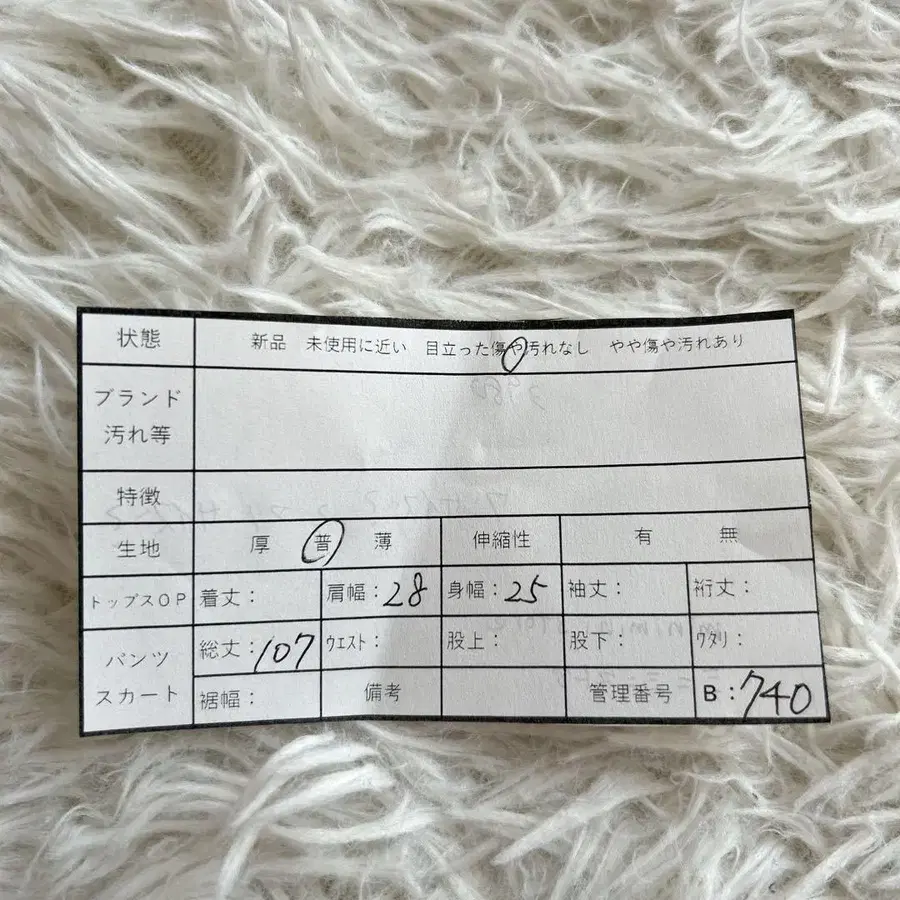 状態 新品 未使用に近い 目立った傷や汚れなし やや傷や汚れあり
ブランド
汚れ等
特徴
生地 厚 普 薄 伸縮性 有 無
トップスOP 着丈: 肩幅:28 身幅:25 袖丈: 裄丈:
パンツ 総丈:107 ウエスト: 股上: 股下: ワタリ:
スカート 裾幅: 備考 管理番号 B:740